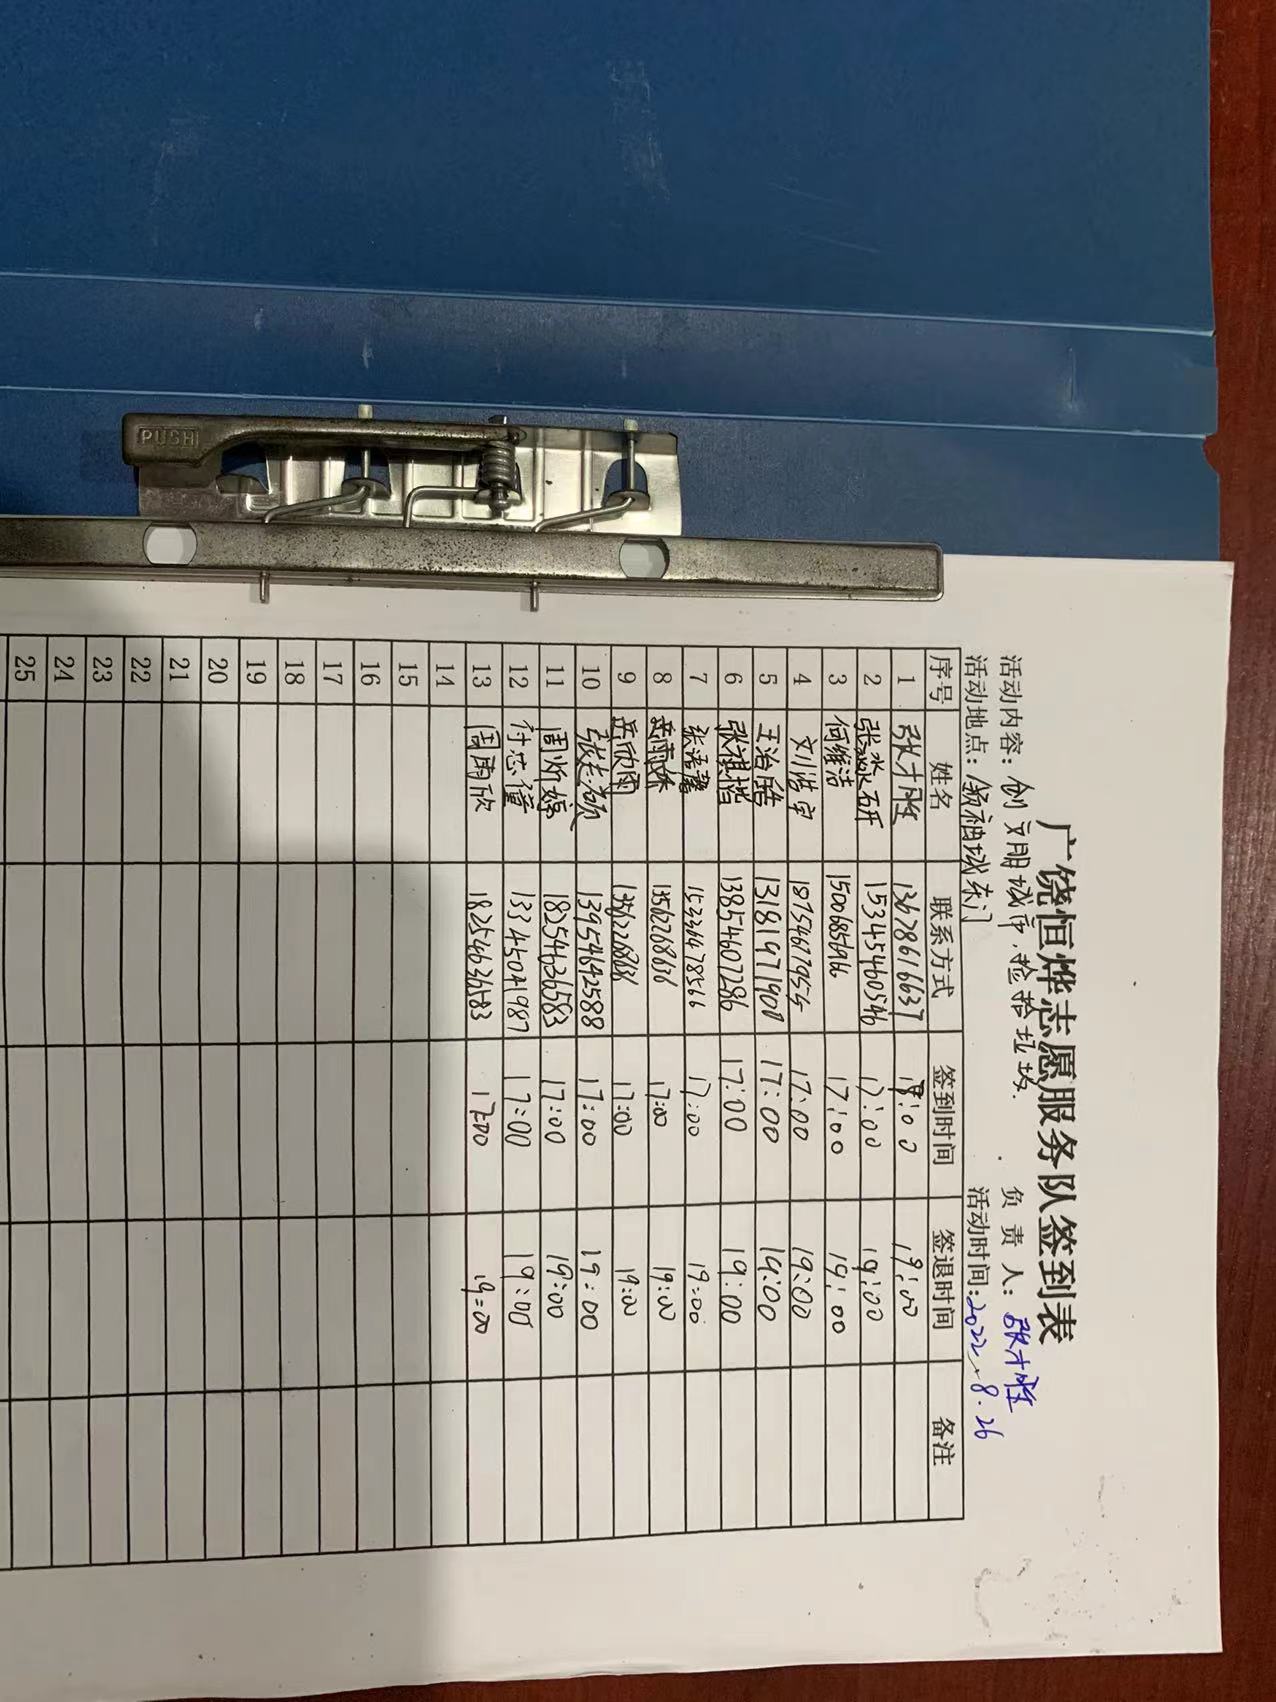 PUSH
广饶恒烨志愿服务队签到表
活动内容：创文明城市，捡拾垃圾. 负责人：张才胜
活动地点：领袖城东门 活动时间：2022.8.26
序号 姓名 联系方式 签到时间 签退时间 备注
1 张才胜 13678616637 17:00 19:00
2 张淼研 15345460546 17:00 19:00
3 何维洁 15006856966 17:00 19:00
4 刘浩宇 18754679554 17:00 19:00
5 王治皓 13181971900 17:00 19:00
6 张祺楷 13854607286 17:00 19:00
7 张洁馨 15336478566 17:00 19:00
8 13562268636 17:00 19:00
9 岳欣雨 13562268636 17:00 19:00
10 13954692588 17:00 19:00
11 周昕嫄 18254636583 17:00 19:00
12 付芯僮 13345041987 17:00 19:00
13 周雨欣 18254636583 17:00 19:00
14
15
16
17
18
19
20
21
22
23
24
25